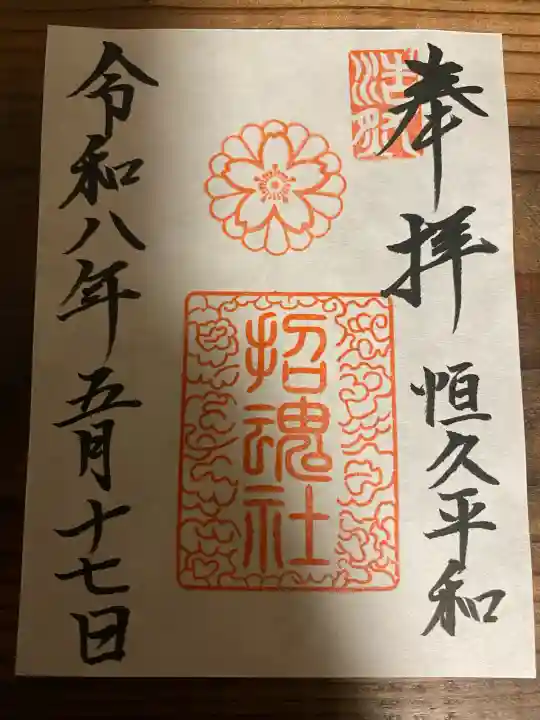 奉拝
恒久平和
招魂社
令和八年五月十七日